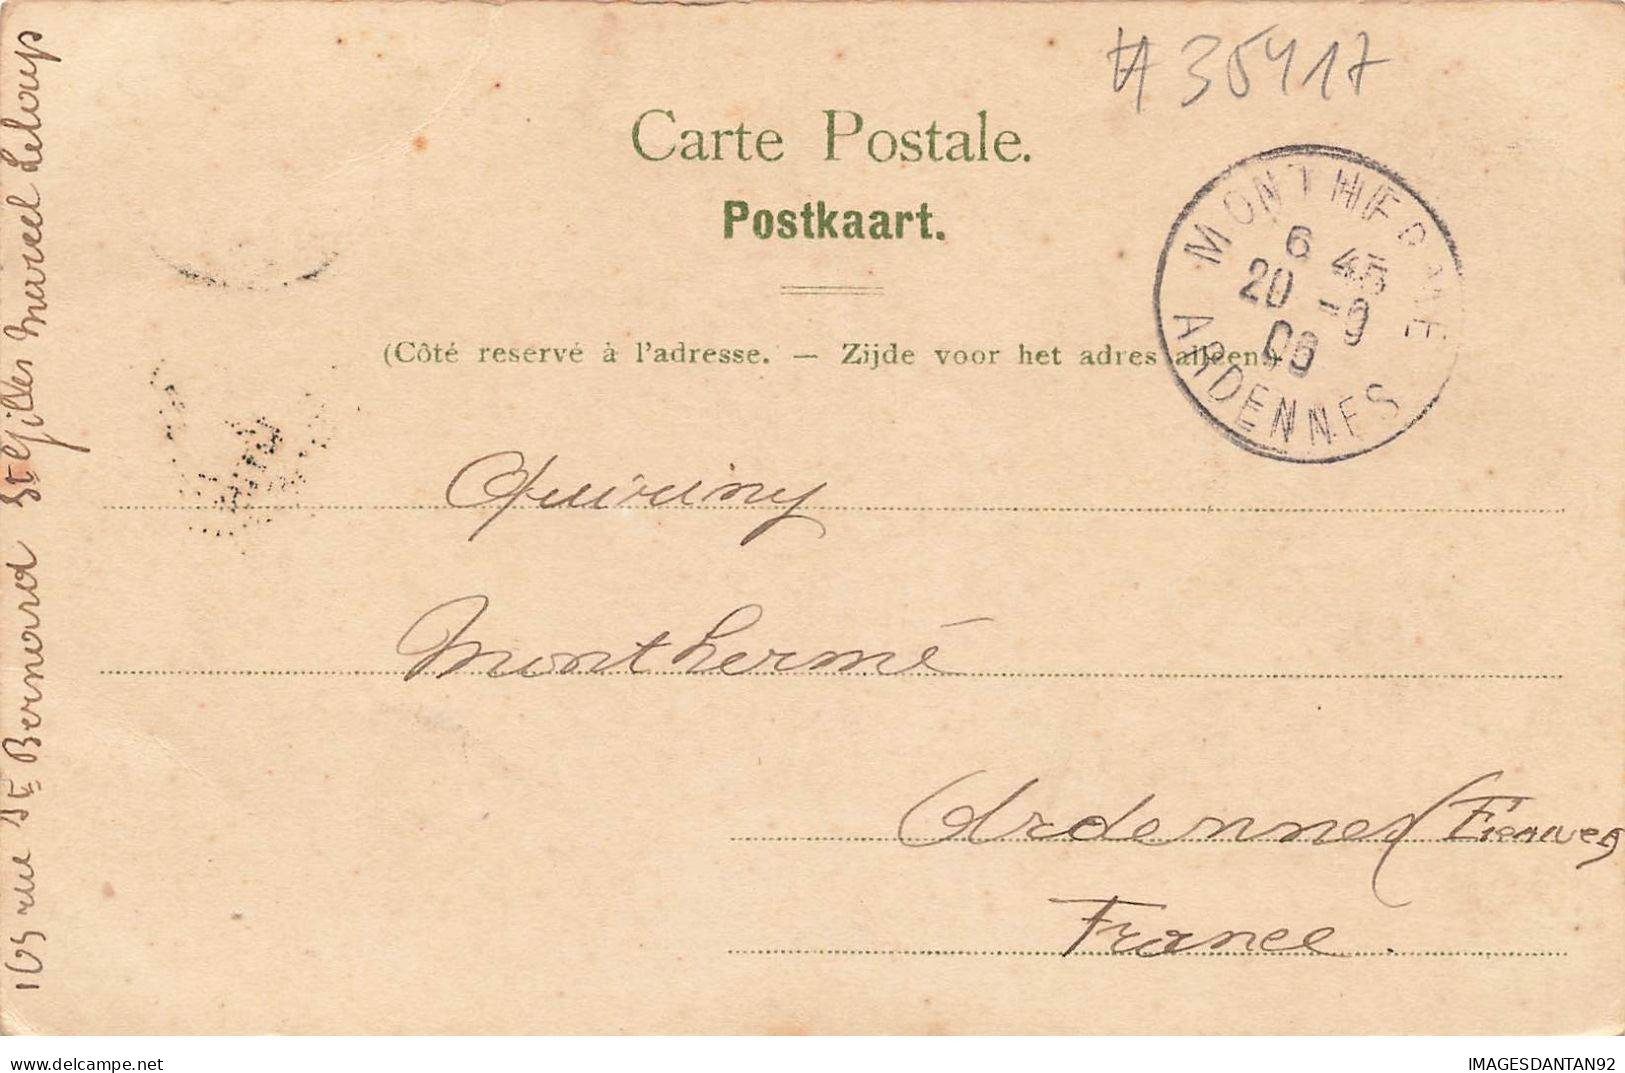 # 35417
Carte Postale.
Postkaart.
(Côté reservé à l'adresse. — Zijde voor het adres alleen.)
MONTHERMÉ
6 45
20 -9
05
ARDENNES
Quiviny
Monthermé
Ardennes (
France.
105 rue St Bernard St Gilles Marcel Leloup
delcampe.net
IMAGESDANTAN92